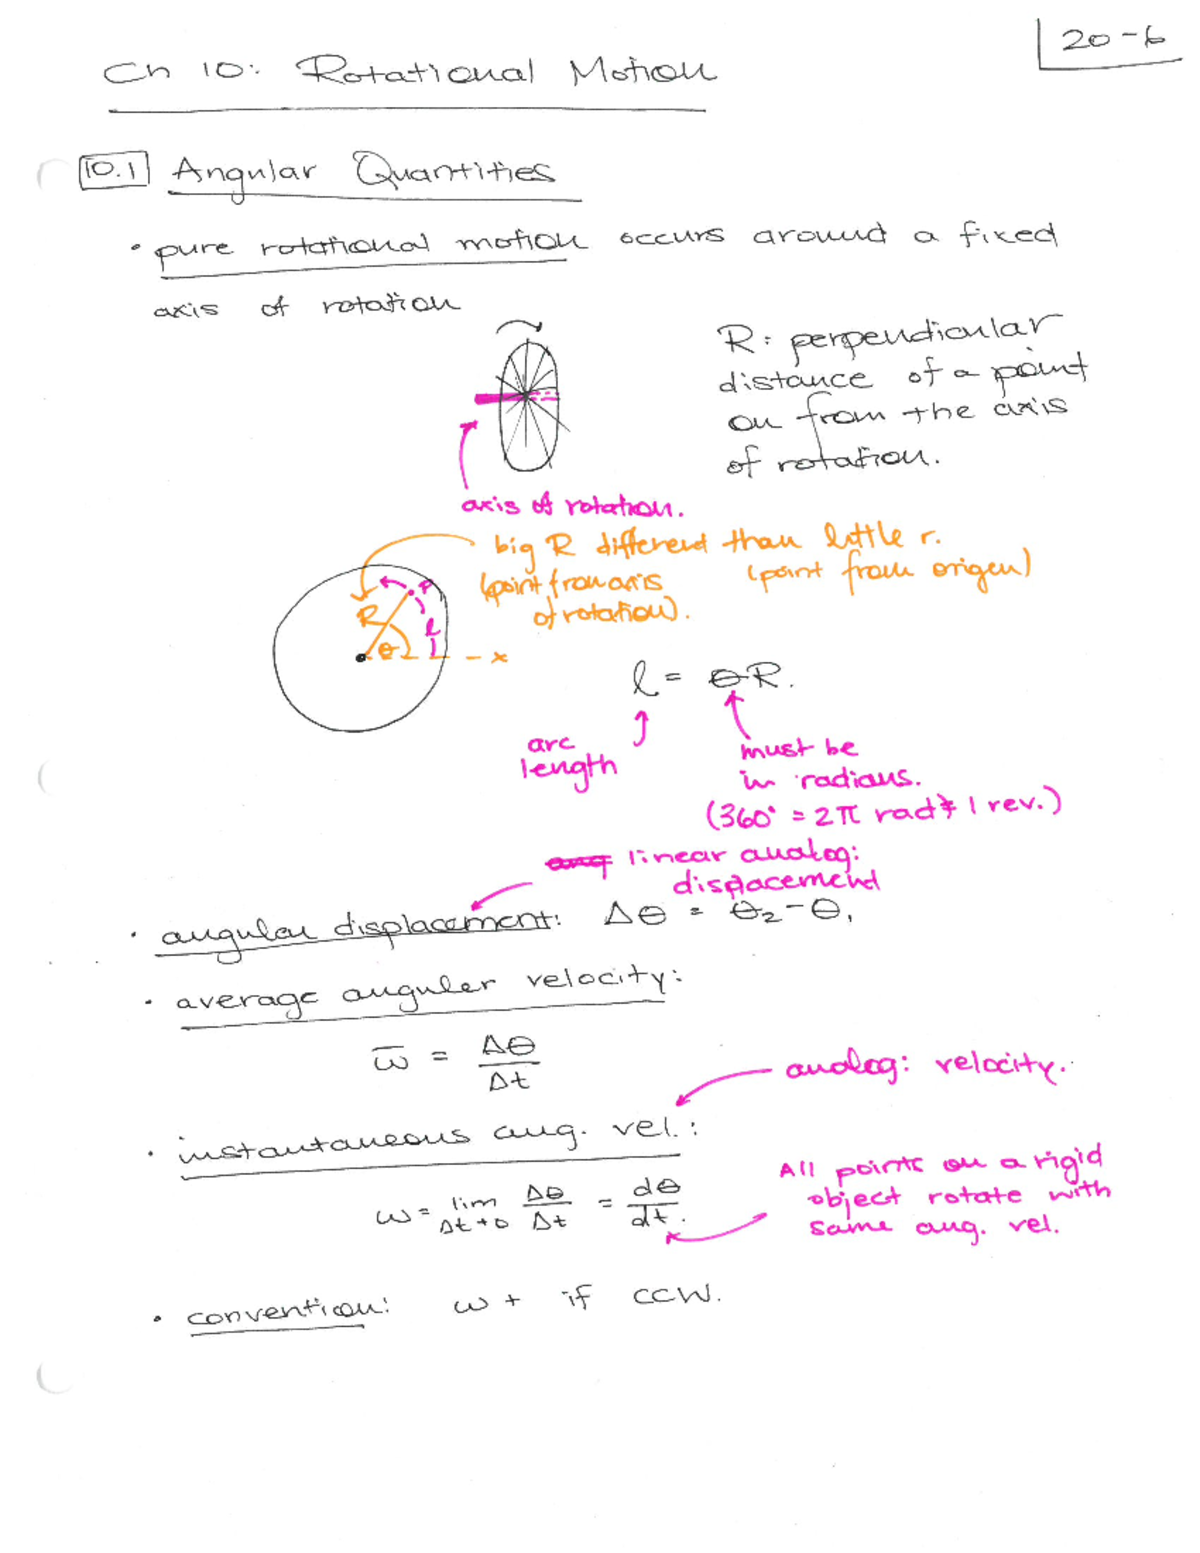 20-6
Ch 10: Rotational Motion
10.1 Angular Quantities
• pure rotational motion occurs around a fixed
axis of rotation
R: perpendicular
distance of a point
on from the axis
of rotation.
axis of rotation.
big R different than little r.
(point from axis
of rotation).
(point from origen)
P
R
l
θ
x
l = θR.
arc
length
must be
in radians.
(360° = 2π rad = 1 rev.)
ang linear analog:
displacement
• angular displacement: Δθ = θ₂ - θ₁
• average angular velocity:
ω̅ = Δθ/Δt
analog: velocity.
• instantaneous ang. vel.:
ω = lim Δt→0 Δθ/Δt = dθ/dt.
All points on a rigid
object rotate with
same ang. vel.
• convention: ω + if CCW.